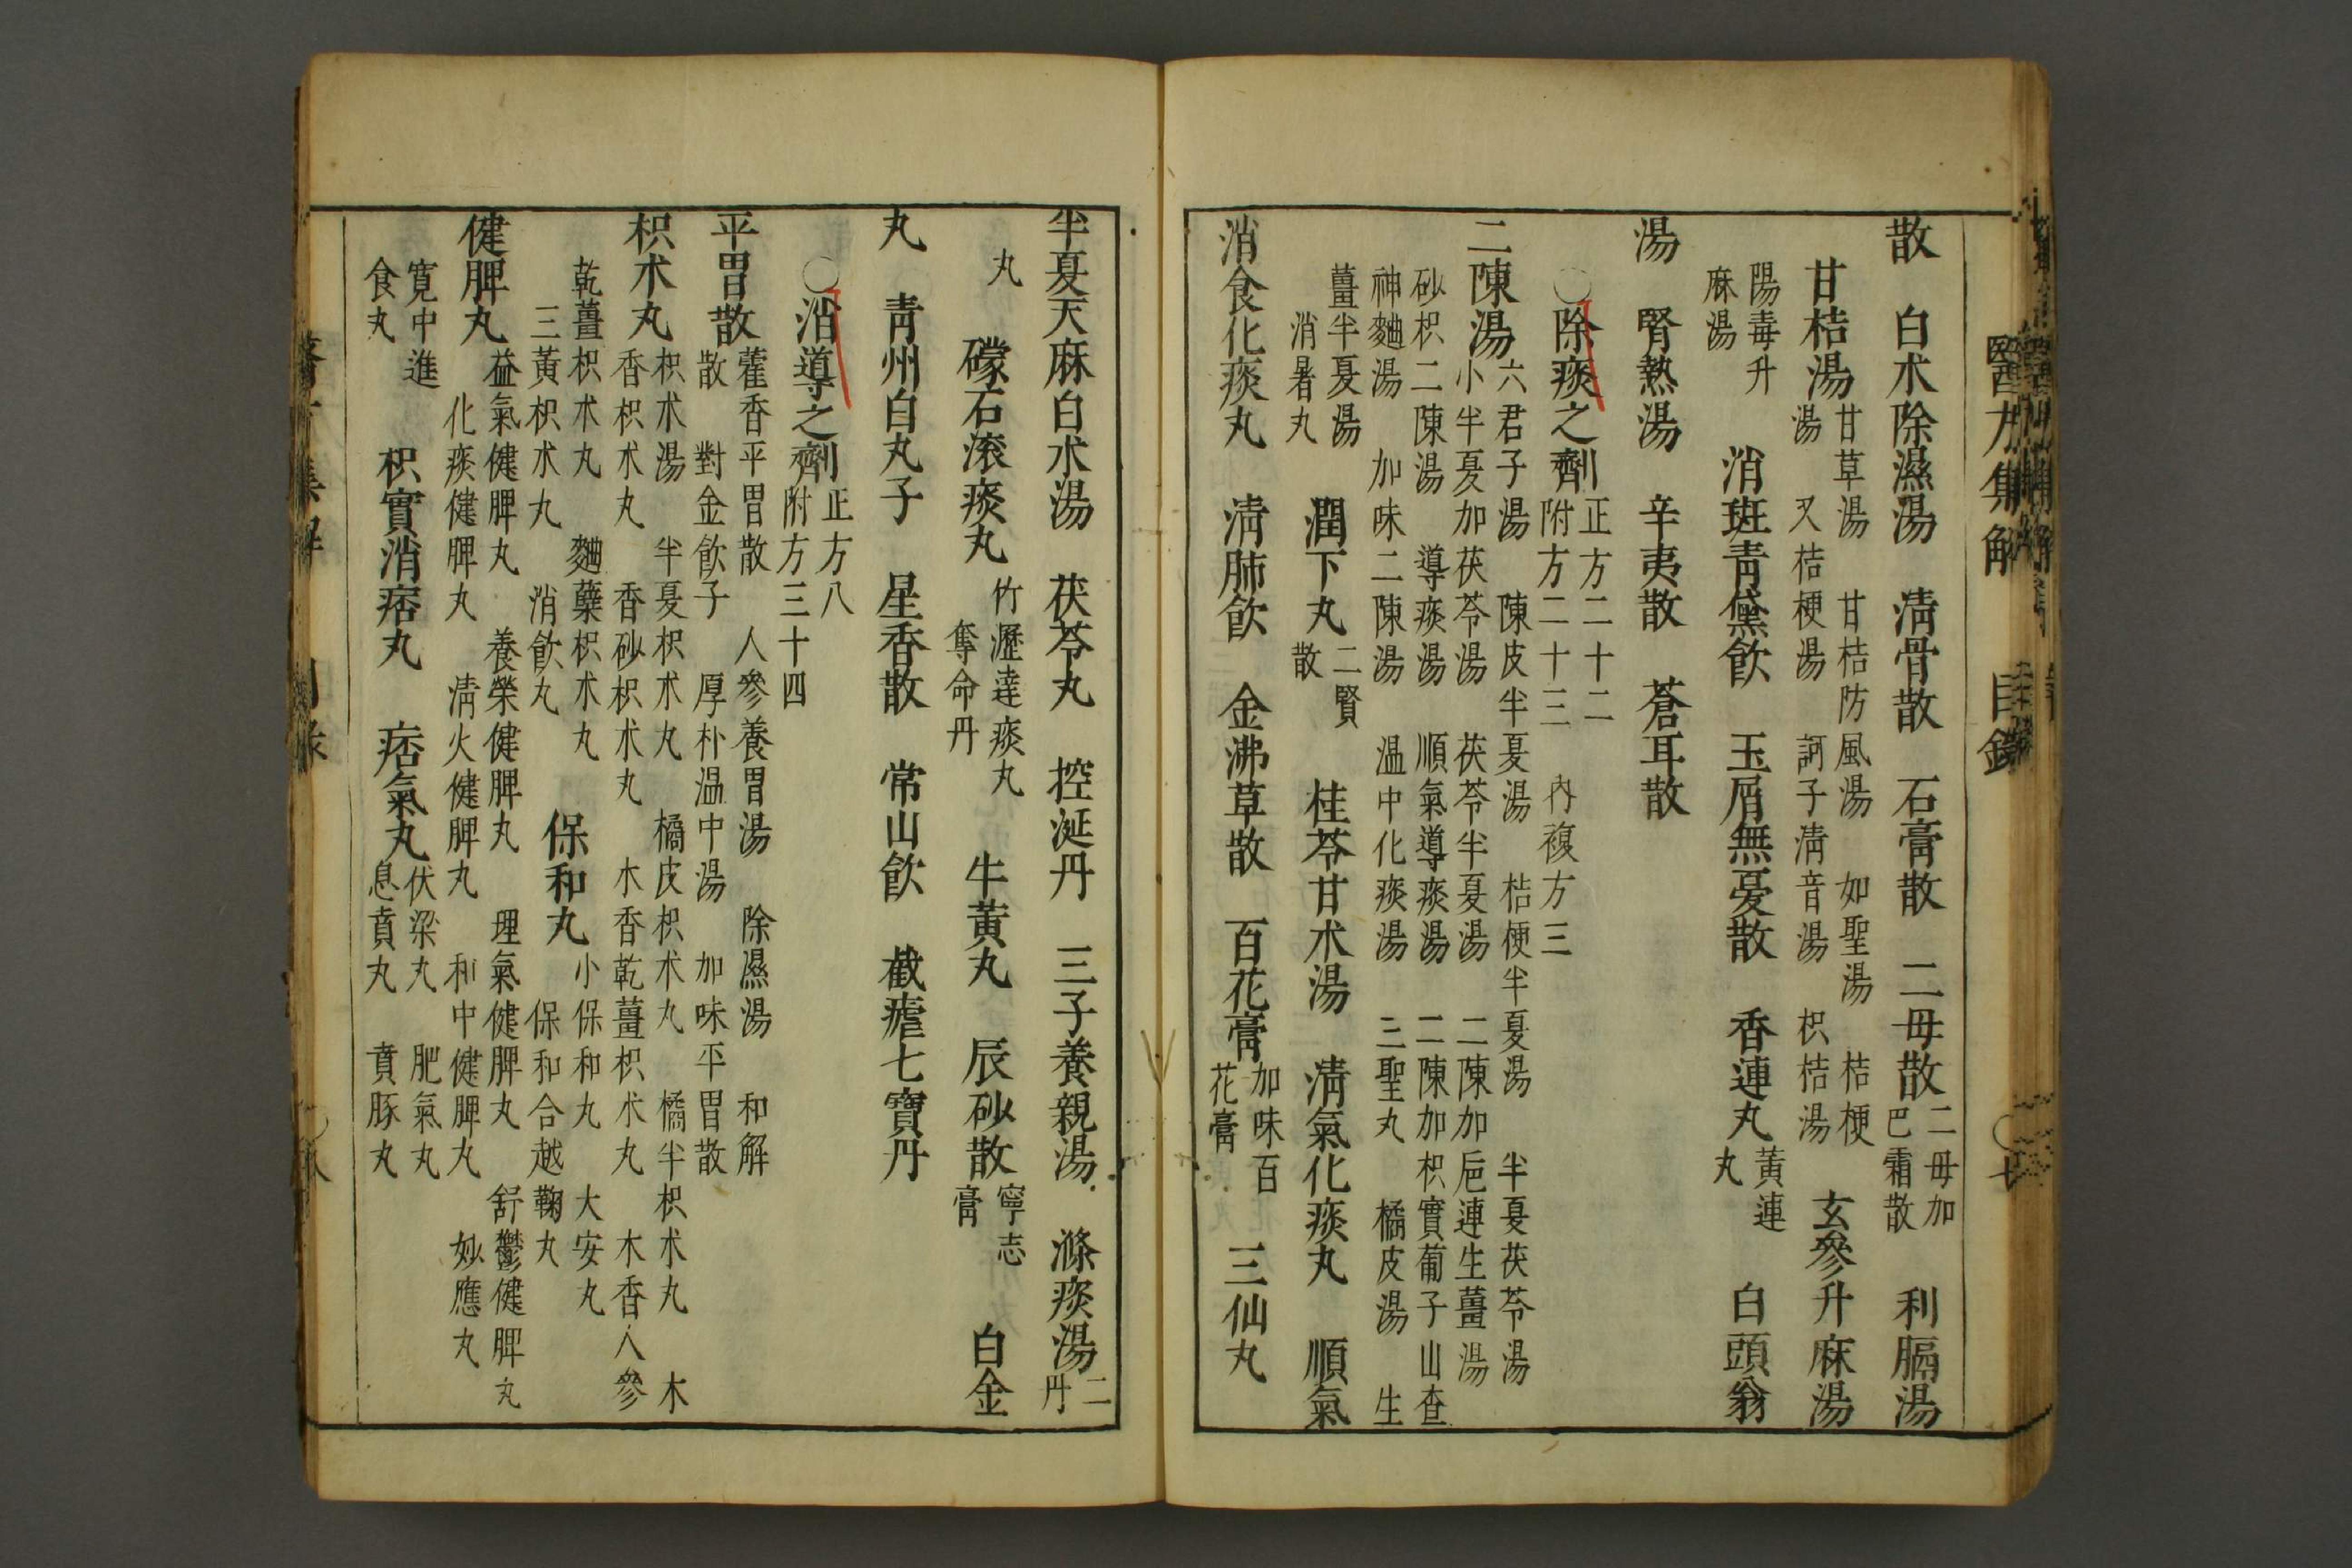 醫方集解　目錄　〇七
散　白朮除濕湯　淸骨散　石膏散　二母散　二母加巴霜散　利膈湯
甘桔湯　甘草湯　甘桔防風湯　如聖湯　桔梗
湯　又桔梗湯　訶子淸音湯　枳桔湯　玄參升麻湯
陽毒升
麻湯　消斑靑黛飮　玉屑無憂散　香連丸　黃連丸　白頭翁
湯　腎熱湯　辛夷散　蒼耳散
〇除痰之劑　正方二十二
附方二十三　內複方三
二陳湯　六君子湯　陳皮半夏湯　桔梗半夏湯　半夏茯苓湯
小半夏加茯苓湯　茯苓半夏湯　二陳加巵連生薑湯
砂枳二陳湯　導痰湯　順氣導痰湯　二陳加枳實葡子山査
神麯湯　加味二陳湯　温中化痰湯　三聖丸　橘皮湯　生
薑半夏湯
消暑丸　潤下丸　二賢散　桂苓甘朮湯　淸氣化痰丸　順氣
消食化痰丸　淸肺飮　金沸草散　百花膏　加味百花膏　三仙丸
半夏天麻白朮湯　茯苓丸　控涎丹　三子養親湯　滌痰湯　二丹
丸　礞石滚痰丸　竹瀝達痰丸　奪命丹　牛黃丸　辰砂散　寧志膏　白金
丸　靑州白丸子　星香散　常山飮　截瘧七寶丹
〇消導之劑　正方八
附方三十四
平胃散　藿香平胃散　人參養胃湯　除濕湯　和解
散　對金飮子　厚朴温中湯　加味平胃散
枳朮丸　枳朮湯　半夏枳朮丸　橘皮枳朮丸　橘半枳朮丸　木
香枳朮丸　香砂枳朮丸　木香乾薑枳朮丸　木香人參
乾薑枳朮丸　麯蘖枳朮丸
三黃枳朮丸　消飮丸　保和丸　小保和丸　大安丸
保和合越鞠丸
健脾丸　益氣健脾丸　養榮健脾丸　理氣健脾丸　舒鬱健脾丸
化痰健脾丸　淸火健脾丸　和中健脾丸　妙應丸
寛中進
食丸　枳實消痞丸　痞氣丸　伏梁丸　肥氣丸
息賁丸　賁豚丸